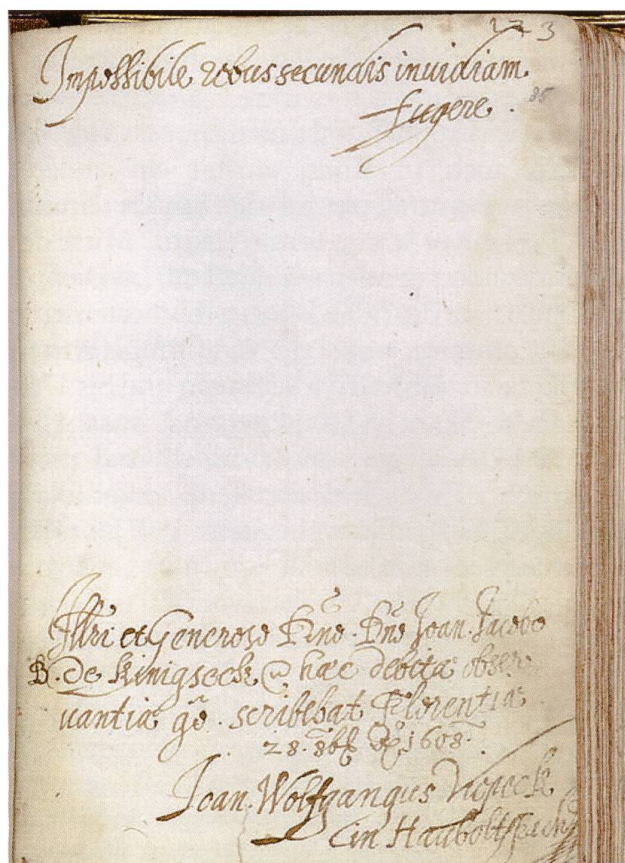 123
Impossibile rebus secundis invidiam
fugere.
85
Illri et Generoso Dn̄o. Dn̄o Joan. Jacobo
B. de Kinigseck hæc debitæ obser
uantiæ gō. scribebat Florentiæ
28. 8bris Aō 1608.
Joan. Wolfgangus
in Haubolt